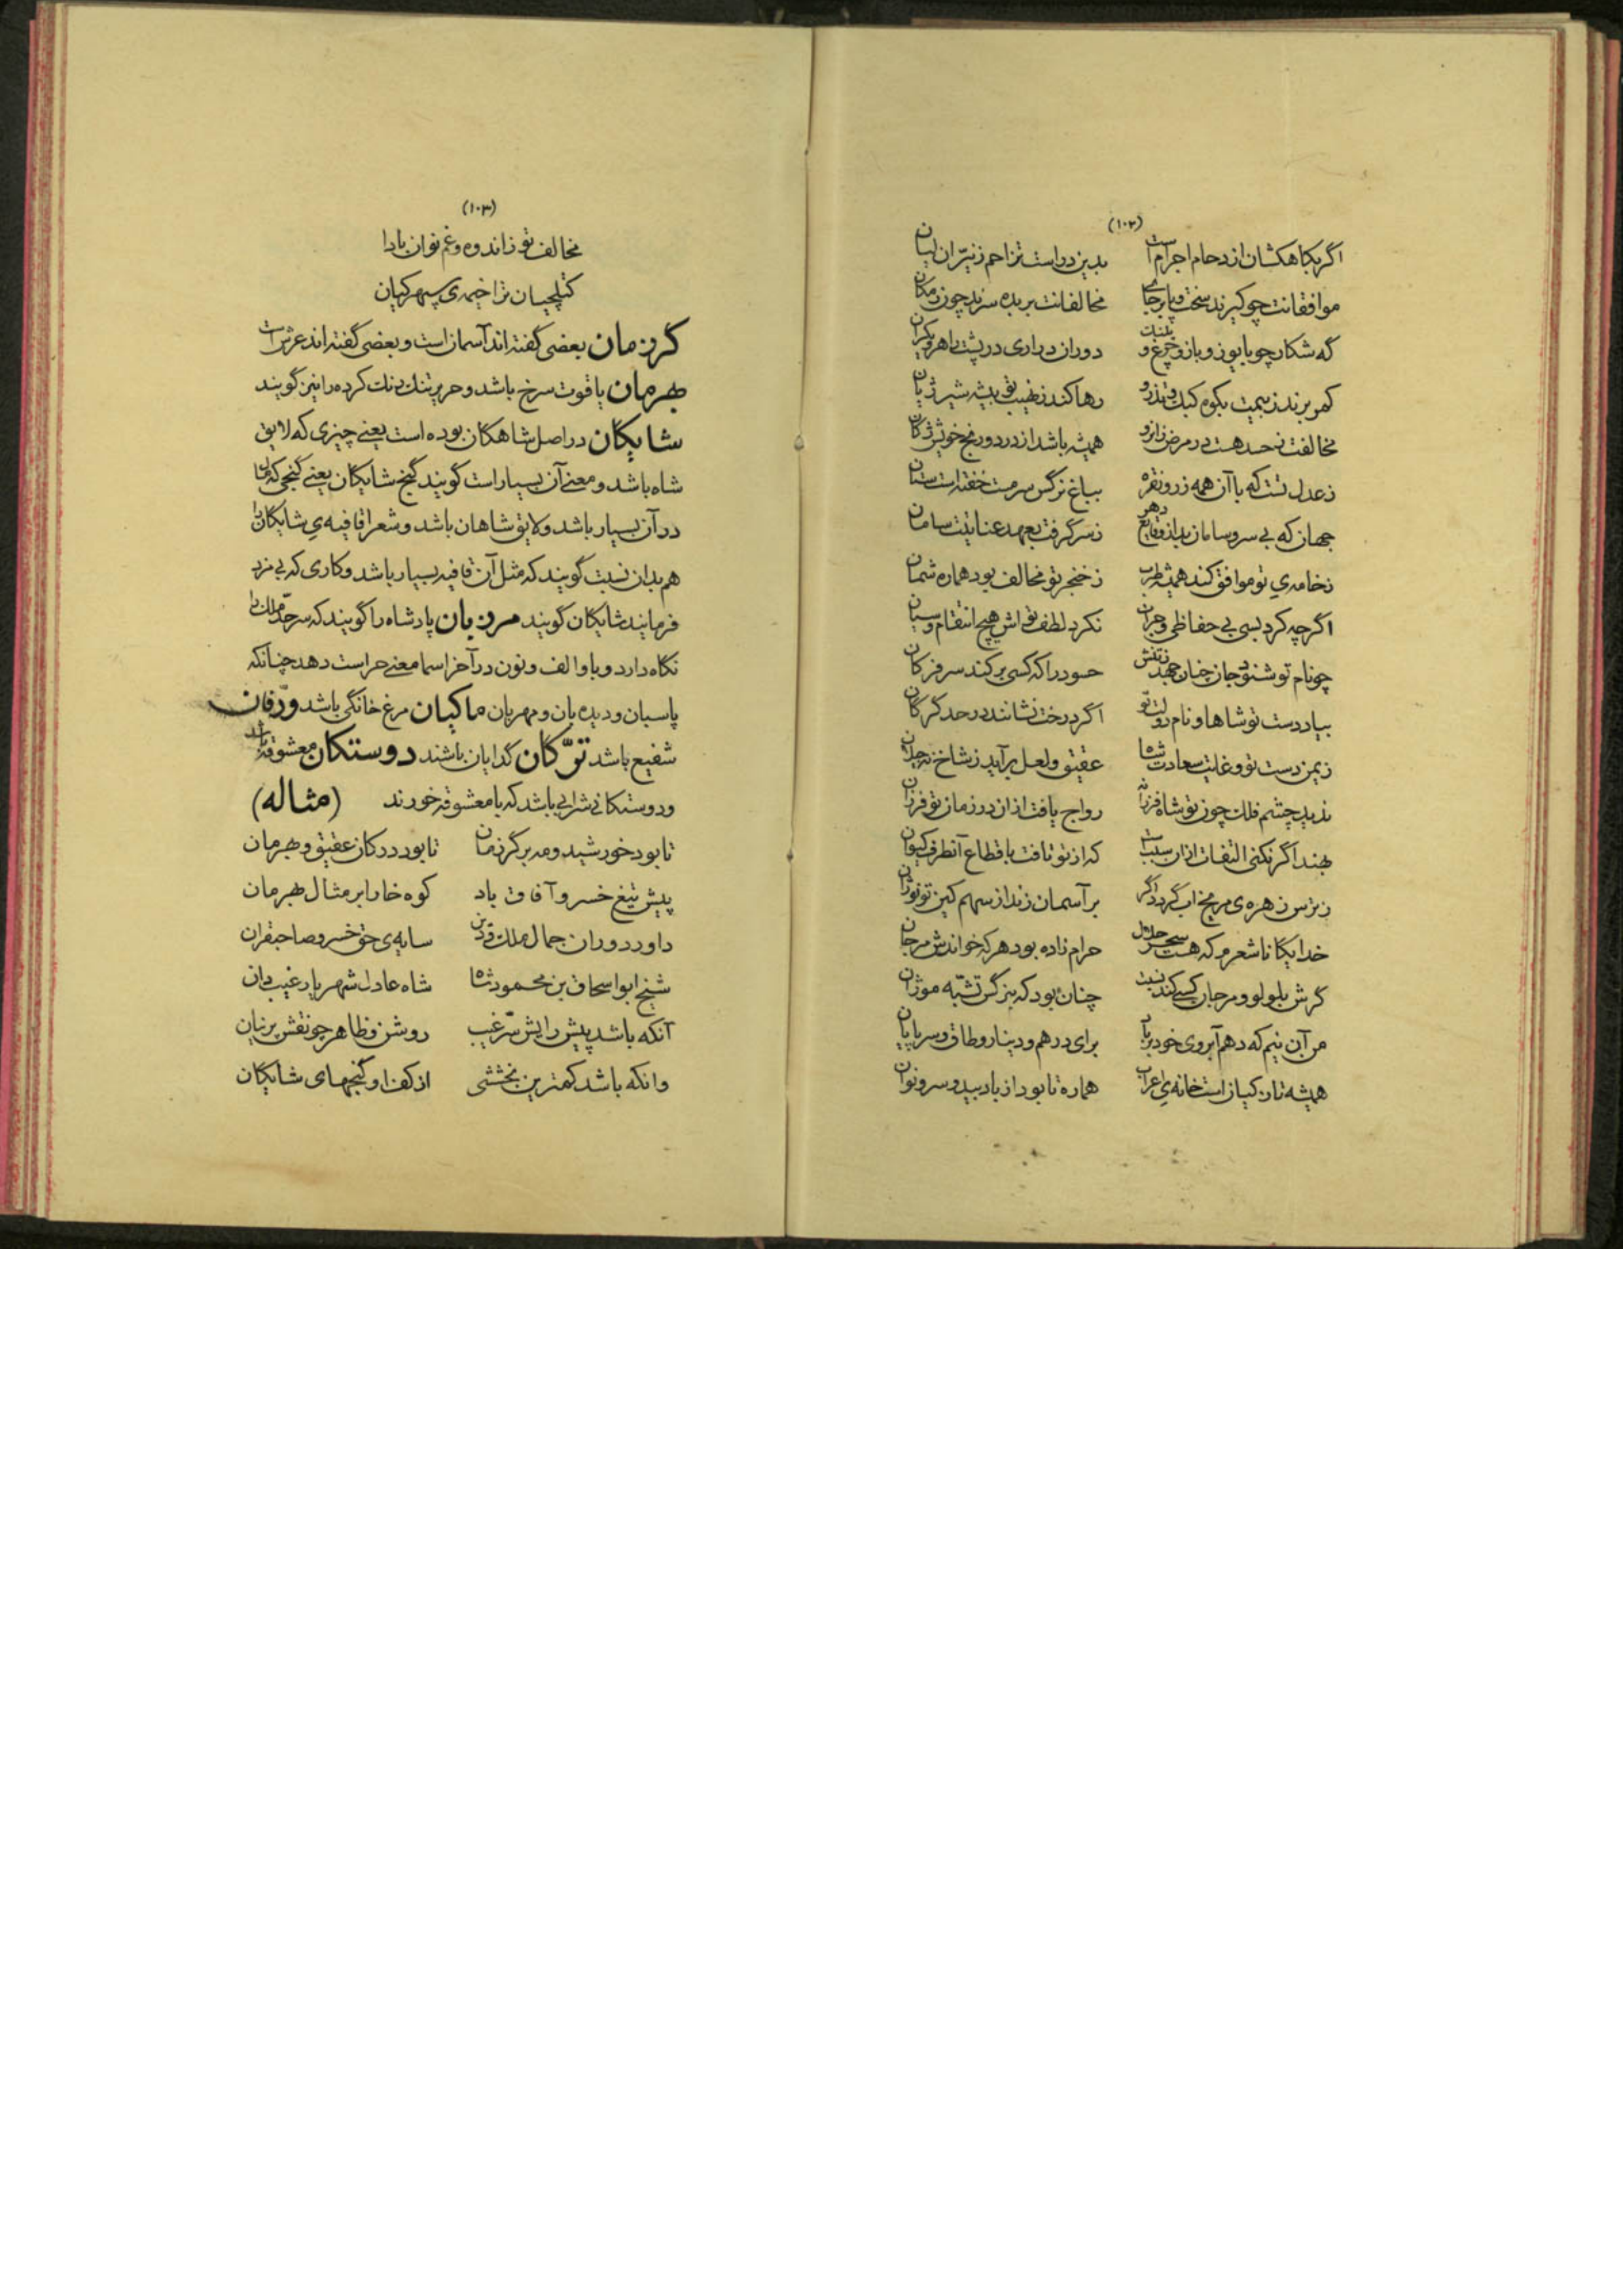 (۱۰۲)
اگر بکاهکشان ازدحام اجرام است بدین دو است تزاحم ز نیران لبان
موافقانت چو گیرند سخت و پابرجای مخالفانت بریده سزند چون زمکان
گه شکار چو با یوز و باز و چرغ و پلنگ دوران در اری در پشت
کمر برند ز بیمت بکوه کبک و تذرو رها کند ز نهیب تو بیشه شیر ژیان
مخالفت ز حسد هست در مرض زانرو همیشه باشد از درد و رنج خویش ژکان
ز عدل تست که با آن همه زر و نقره بباغ نرگس سرمست خفته است ستان
جهان که بی سر و سامان بد از وقایع دهر ز سر گرفت بعهد عنایتت سامان
ز خامه‌ی تو موافق کند همیشه طرب ز خنجر تو مخالف بود هماره شمان
اگر چه کرد بسی بی حفاظی و نکرد لطف تو اش هیچ انتقام و
چو نام تو شنود جان چنان جهد ز تنش حسود را که کسی بر کند سر فرکان
بیاد دست تو شاها و نام دولت تو اگر درخت نشانند در حد کرکان
ز یمن دست تو و غایت سعادت شاه عقیق و لعل برآید ز شاخ نه
ندید چشم فلک چون تو شاه فرزانه رواج یافت ازان در زمان تو فرزان
بهند اگر نکنی التفات ازان سببست که از تو تافت باقطاع آنطرف کیوان
ز ترس زهره‌ی مریخ آب گردد اگر بر آسمان زند از سهم کین تو
خدایگانا شعرم که هست سحر حلال حرام زاده بود هر که خواندش مرجان
گرش بلولو و مرجان کسی کند نسبت چنان بود که بنرگس تشبه موژان
من آن نیم که دهم آبروی خود بر باد برای درهم و دینار و طاق و سریاپان
همیشه تا ز کیان است خانه‌ی اعراب هماره تا بود از باد بید و سرو نوان
(۱۰۳)
مخالف تو ز اندوه و غم نوان بادا
کتلچیان ترا خیمه‌ی سپهر کیان
کرزمان بعضی گفته اند آسمان است و بعضی گفته اند عرش است
بهرمان یاقوت سرخ باشد و حریر تنک رنگ کرده را نیز گویند
شایگان در اصل شاهگان بوده است یعنی چیزی که لایق
شاه باشد و معنی آن بسیار است گویند گنج شایگان یعنی گنجی که مال
در آن بسیار باشد و لایق شاهان باشد و شعرا قافیه‌ی شایگان را
هم بدان نسبت گویند که مثل آن قافیه بسیار باشد و کاری که بی مزد
فرمایند شایگان گویند مرزبان پادشاه را گویند که سرحد ملک را
نگاه دارد و با و الف و نون در آخر اسما معنی حراست دهد چنانکه
پاسبان و دیده بان و مهربان ماکیان مرغ خانگی باشد ورفان
شفیع باشد ترکان گدایان باشند دوستکان معشوقه باشد
و دوستکانی شرابی باشد که با معشوقه خورند (مثاله)
تا بود خورشید و مه بر کرزمان تا بود در کان عقیق و بهرمان
پیش تیغ خسرو آفاق باد کوه خارا بر مثال بهرمان
داور دوران جمال ملک و دین سایه‌ی حق خسرو صاحبقران
شیخ ابو اسحاق بن محمود شاه شاه عادل شهریار غیب دان
آنکه باشد پیش رایش سر غیب روشن و ظاهر چو نقش پرنیان
وانکه باشد کمترین بخششی از کف او گنجهای شایگان